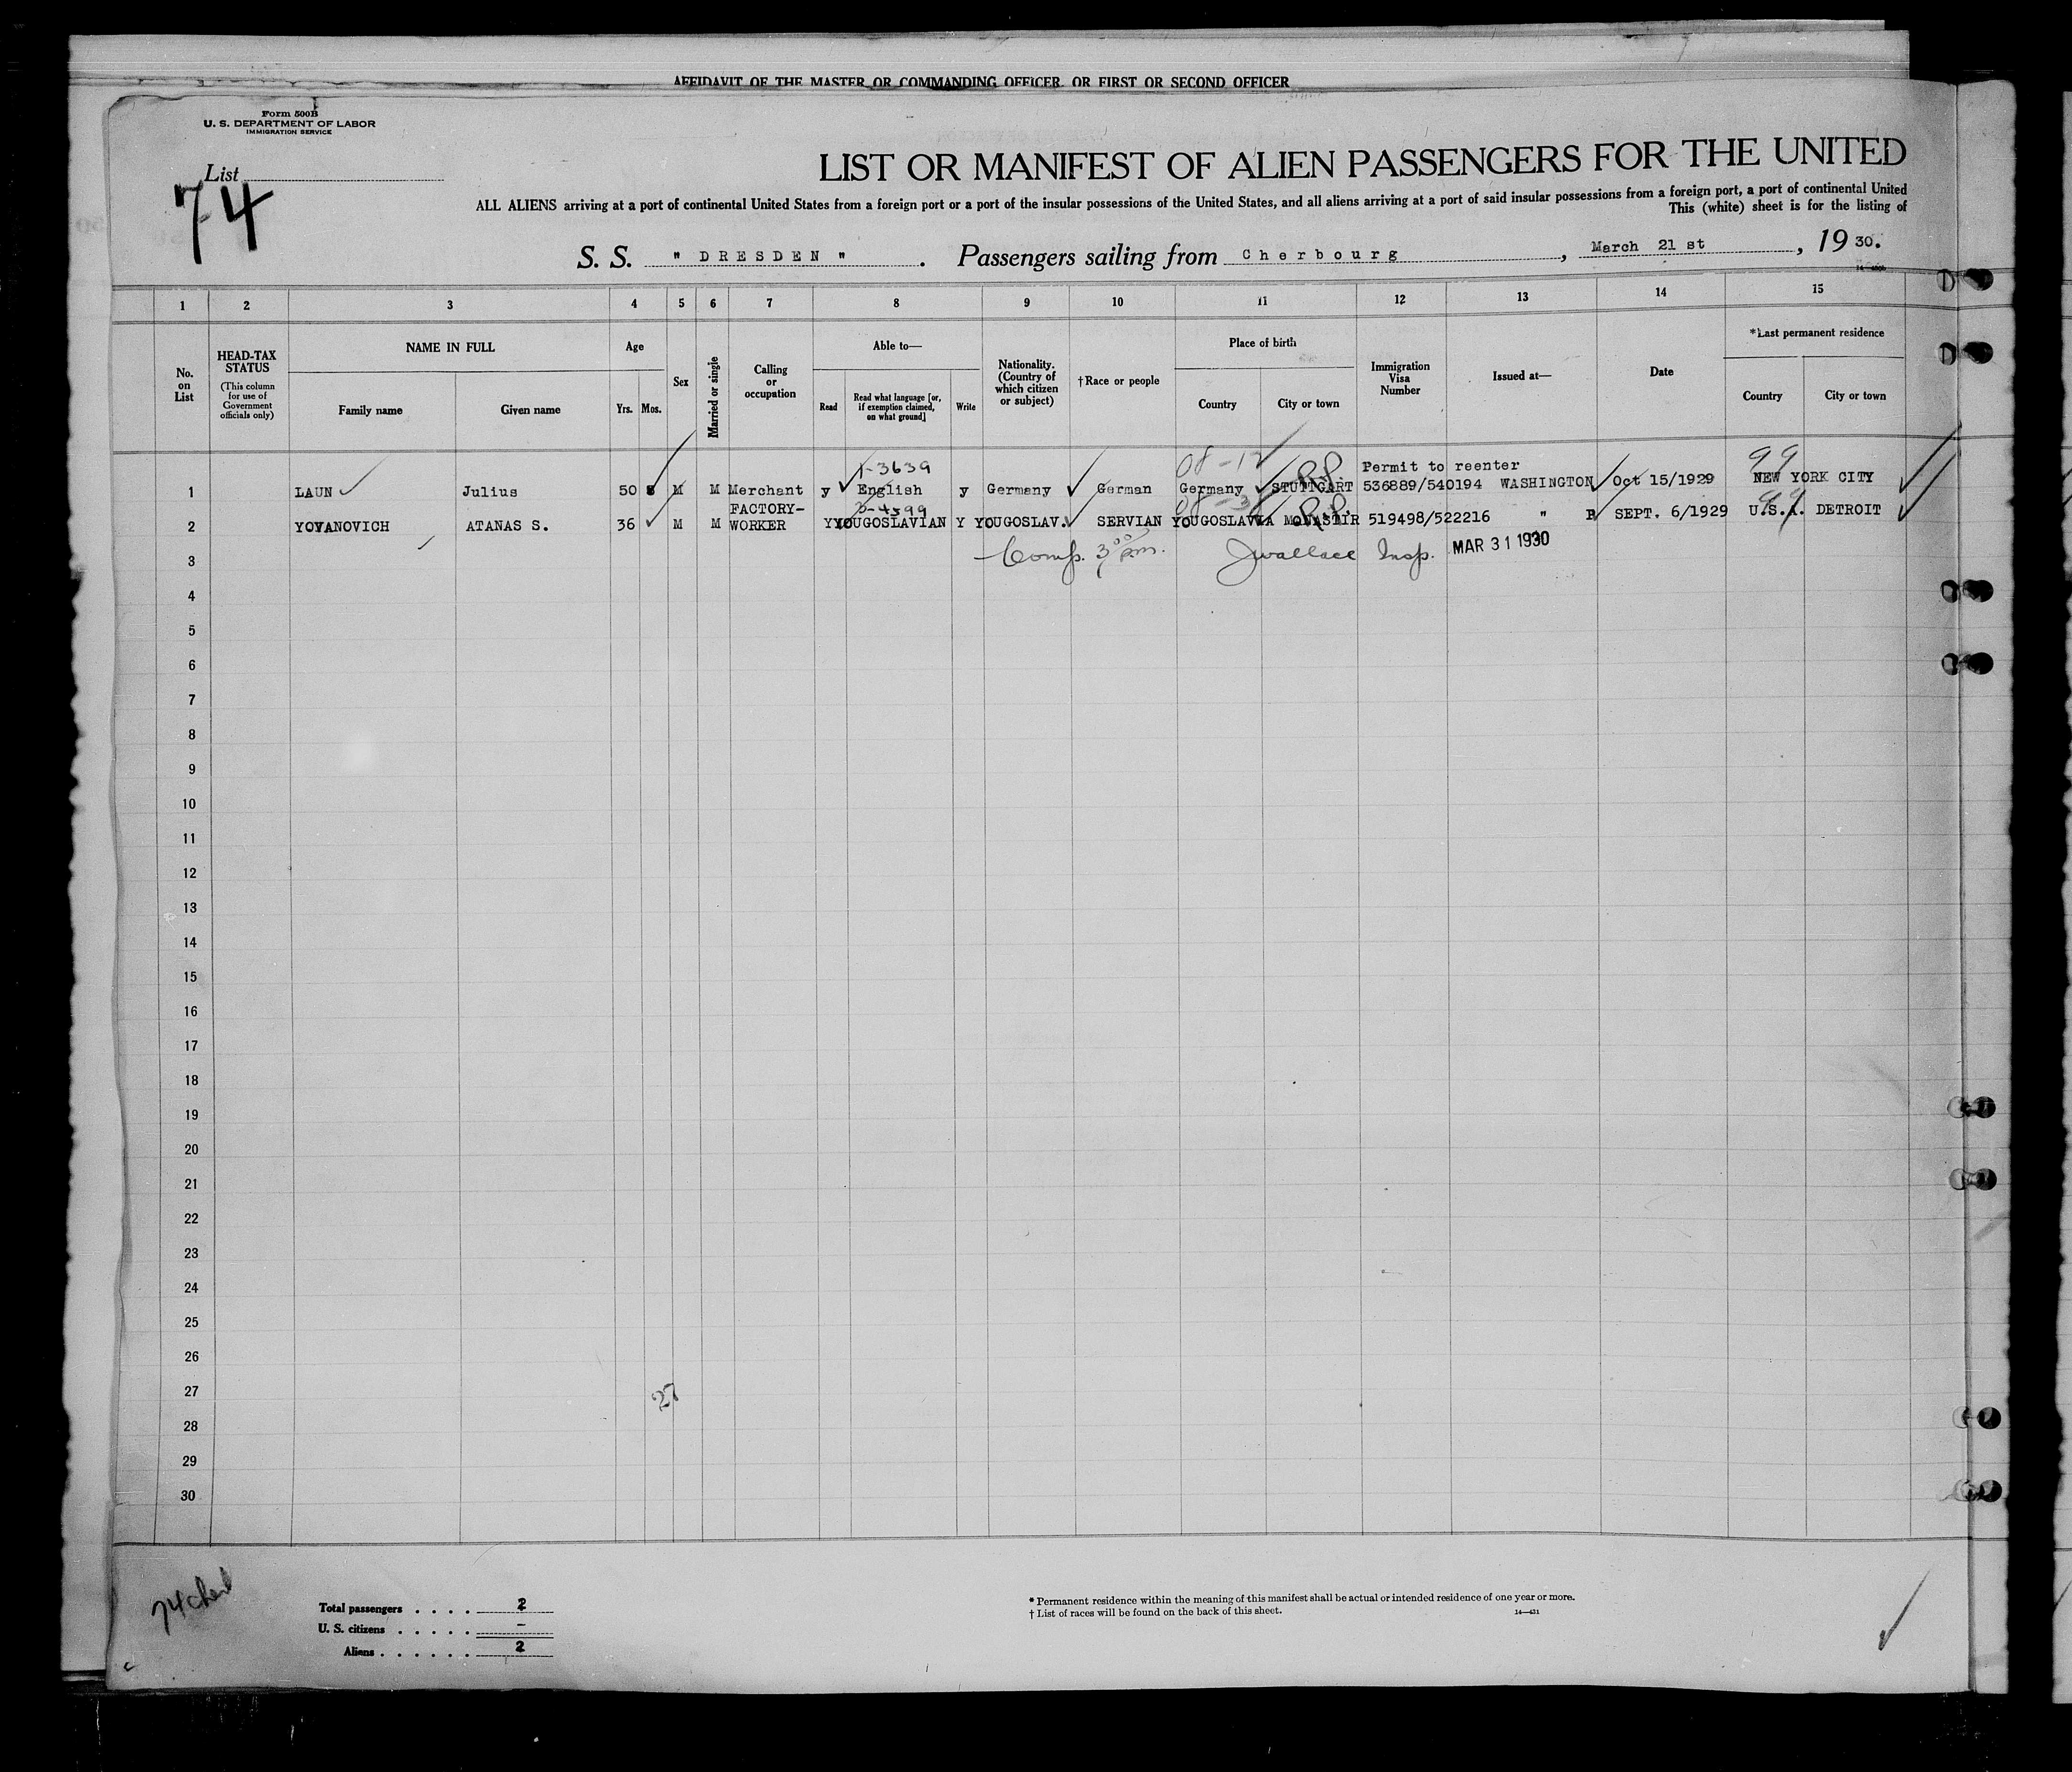 AFFIDAVIT OF THE MASTER OR COMMANDING OFFICER, OR FIRST OR SECOND OFFICER
Form 500B
U. S. DEPARTMENT OF LABOR
IMMIGRATION SERVICE
List
74
LIST OR MANIFEST OF ALIEN PASSENGERS FOR THE UNITED
ALL ALIENS arriving at a port of continental United States from a foreign port or a port of the insular possessions of the United States, and all aliens arriving at a port of said insular possessions from a foreign port, a port of continental United
This (white) sheet is for the listing of
S. S. " DRESDEN " . Passengers sailing from Cherbourg , March 21 st , 19 30.
1 2 3 4 5 6 7 8 9 10 11 12 13 14 15
No. on List
HEAD-TAX STATUS
(This column for use of Government officials only)
NAME IN FULL
Family name
Given name
Age
Yrs. Mos.
Sex
Married or single
Calling or occupation
Able to—
Read
Read what language [or, if exemption claimed, on what ground]
Write
Nationality. (Country of which citizen or subject)
†Race or people
Place of birth
Country
City or town
Immigration Visa Number
Issued at—
Date
*Last permanent residence
Country
City or town
1-3639 08-12 R.P. Permit to reenter 99
1 LAUN Julius 50 M M Merchant y English y Germany German Germany STUTTGART 536889/540194 WASHINGTON Oct 15/1929 NEW YORK CITY
FACTORY-
2 YOVANOVICH ATANAS S. 36 M M WORKER Y YOUGOSLAVIAN Y YOUGOSLAV. SERVIAN YOUGOSLAVIA MONASTIR 519498/522216 " SEPT. 6/1929 U.S.A. DETROIT
Comp. 3 00 pm. JWallace Insp. MAR 31 1930
3
4
5
6
7
8
9
10
11
12
13
14
15
16
17
18
19
20
21
22
23
24
25
26
27
27
28
29
30
74 cher
Total passengers . . . . 2
U. S. citizens . . . . . -
Aliens . . . . . . 2
* Permanent residence within the meaning of this manifest shall be actual or intended residence of one year or more.
† List of races will be found on the back of this sheet.
14—431